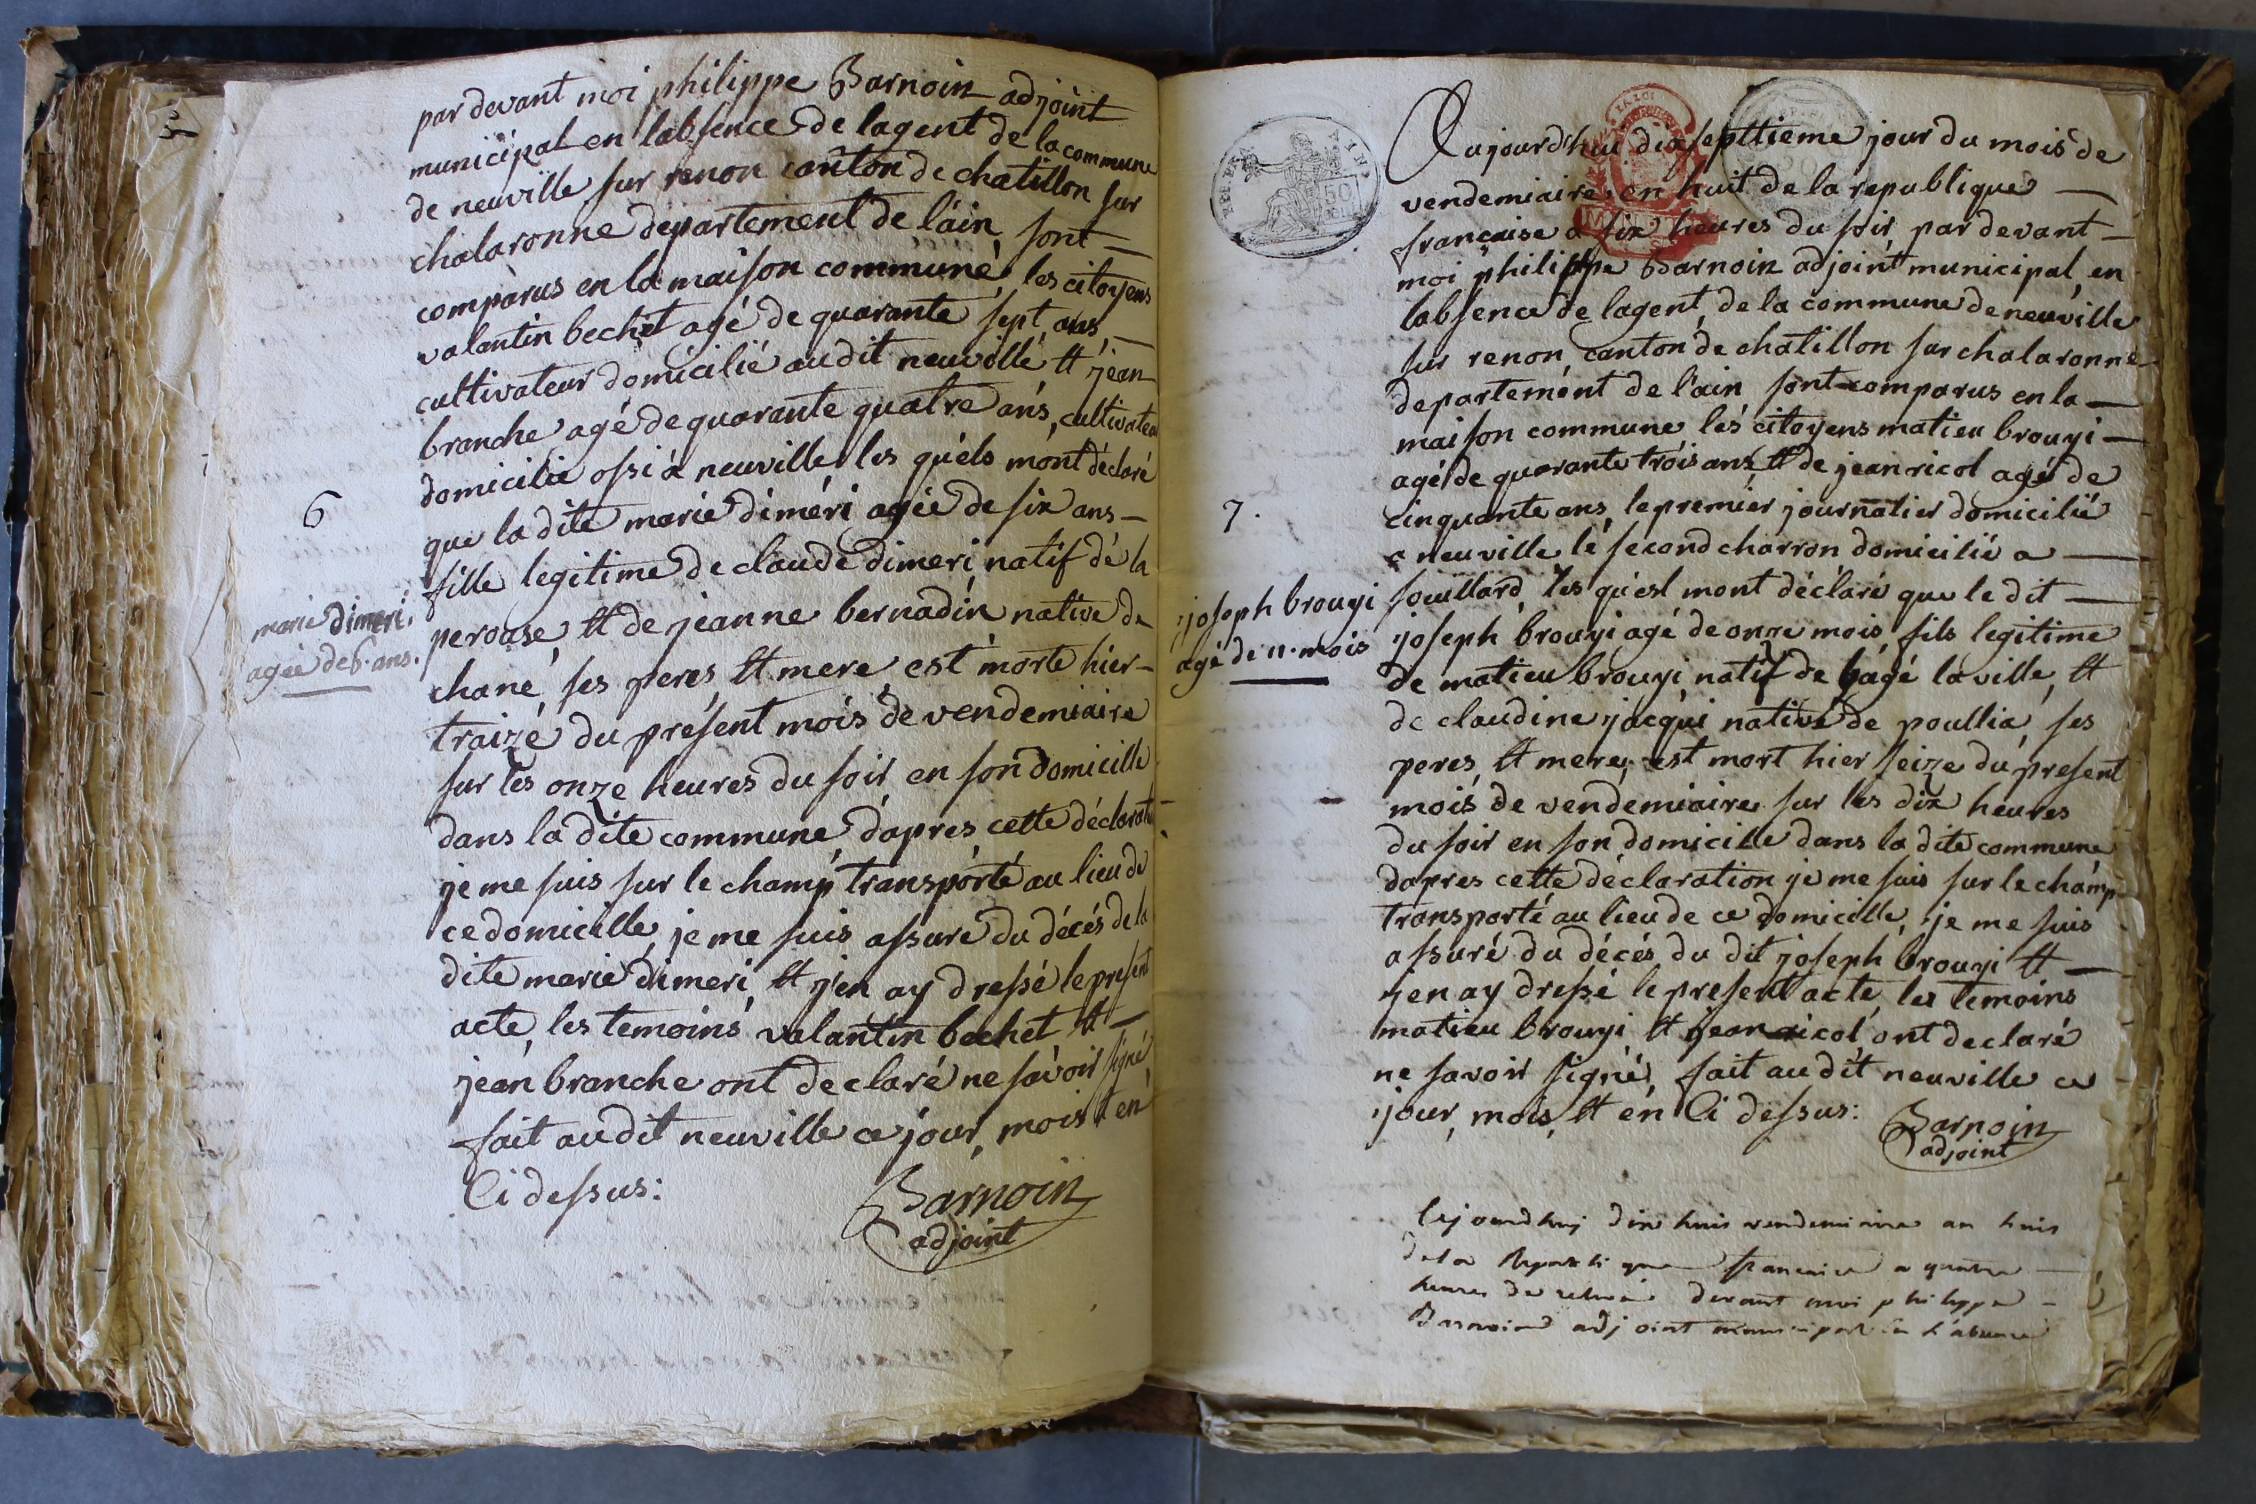 par devant moi philippe Barnoin adjoint
municipal en l'absence de lagent de la commune
de neuville sur renon canton de chatillon sur
chalaronne departement de l'ain sont
comparus en la maison commune, les citoyens
valantin bechet agé de quarante sept ans,
cultivateur domicilié audit neuville et jean
branche agé de quarante quatre ans, cultivateur
domicilie ossi a neuville les quéls mont déclaré
que la dite marie diméri agée de six ans
6
fille legitime de claude dimeri natif dé la
marie dimeri,
agée de 6. ans.
perouse, et de jeanne bernadin native de
chané, ses peres et mere, est morte hier
traizé du présent mois de vendemiaire
sur les onze heures du soir en son domicille
dans la dite commune, d'apres cette déclarat
je me suis sur le champ transporté au lieu de
ce domicille je me suis assuré du décés de la
dite marie dimeri, et j'en ay dressé le present
acte, les temoins valantin bechet, et
jean branche ont declaré ne savoir signé,
fait audit neuville ce jour, mois et en
Ci dessus:
Barnoin
adjoint
VINGT
50
Aujourd'hui dix septtieme jour du mois de
vendemiaire, en huit de la republique
française a six heures du soir par devant
moi philippe Barnoin adjoint municipal, en
labsence de lagent, de la commune de neuville
sur renon canton de chatillon sur chalaronne
departemént de l'ain sont comparus en la
maison commune, les citoyens matieu brouyi
agé de quarante trois ans, et de jean ricol agé de
7.
cinquante ans, le premier journalier domicilié
a neuville lé second charron domicilié a
souillard, les quésl mont déclaré que le dit
joseph brouyi
agé de 11. mois
joseph brouyi agé de onze mois, fils legitime
de matieu brouyi natif de bagé la ville, et
de claudine jacqui native de poullia, ses
peres, et mere, est mort hier seize du présent
mois de vendemiaire sur les dix heures
du soir en son domicille dans la dite commune
dapres cette déclaration je me suis sur le champ
transporté au lieu de ce domicille, je me suis
assuré du décés du dit joseph brouyi et
jen ay dressé le present acte, les temoins
matieu brouyi, et jean ricol, ont declaré
ne savoir signé, fait audit neuville ce
jour, mois, et en Ci dessus:
Barnoin
adjoint
Cejourdhuj dix huit vendemiaire an huit
de la Republique française a quatre
heures de relevé devant moi philippe
Barnoin adjoint municipal en l'absence